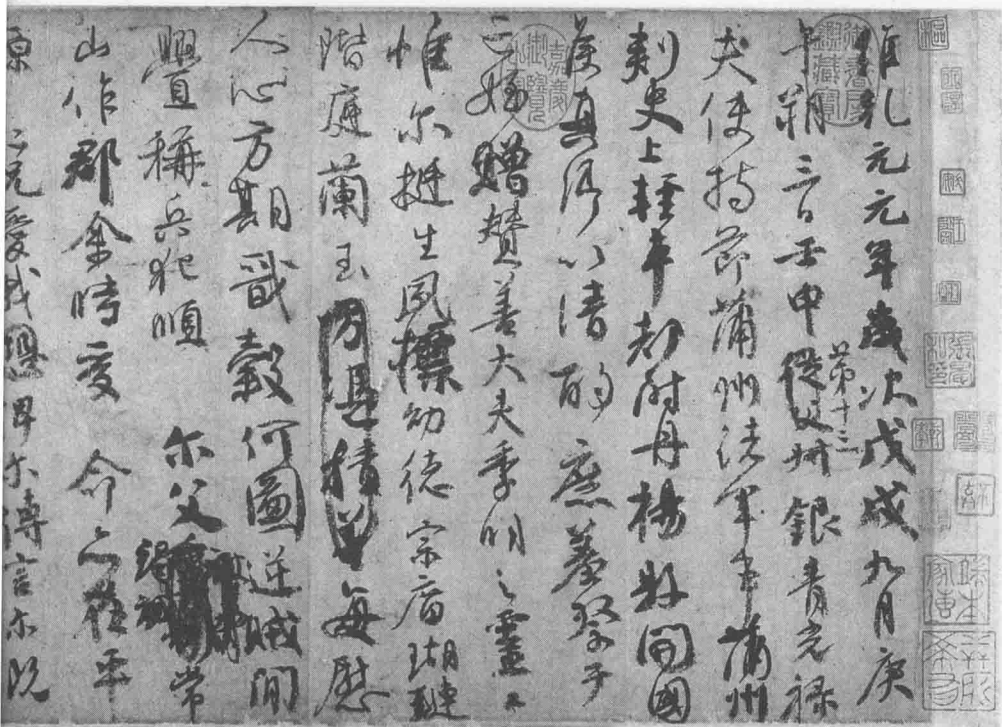 維乾元元年歲次戊戌九月庚
午朔三日壬申第十三從父銀青光祿
夫使持節蒲州諸軍事蒲州
刺史上輕車都尉丹楊縣開國
侯真卿以清酌庶羞祭于
亡姪贈贊善大夫季明之靈
惟尔挺生夙標幼德宗廟瑚璉
階庭蘭玉方憑積善每慰
人心方期戩穀何圖逆賊閒
釁稱兵犯順尔父常
山作郡余時受命亦在平
原仁兄愛我俾尔傳言尔既